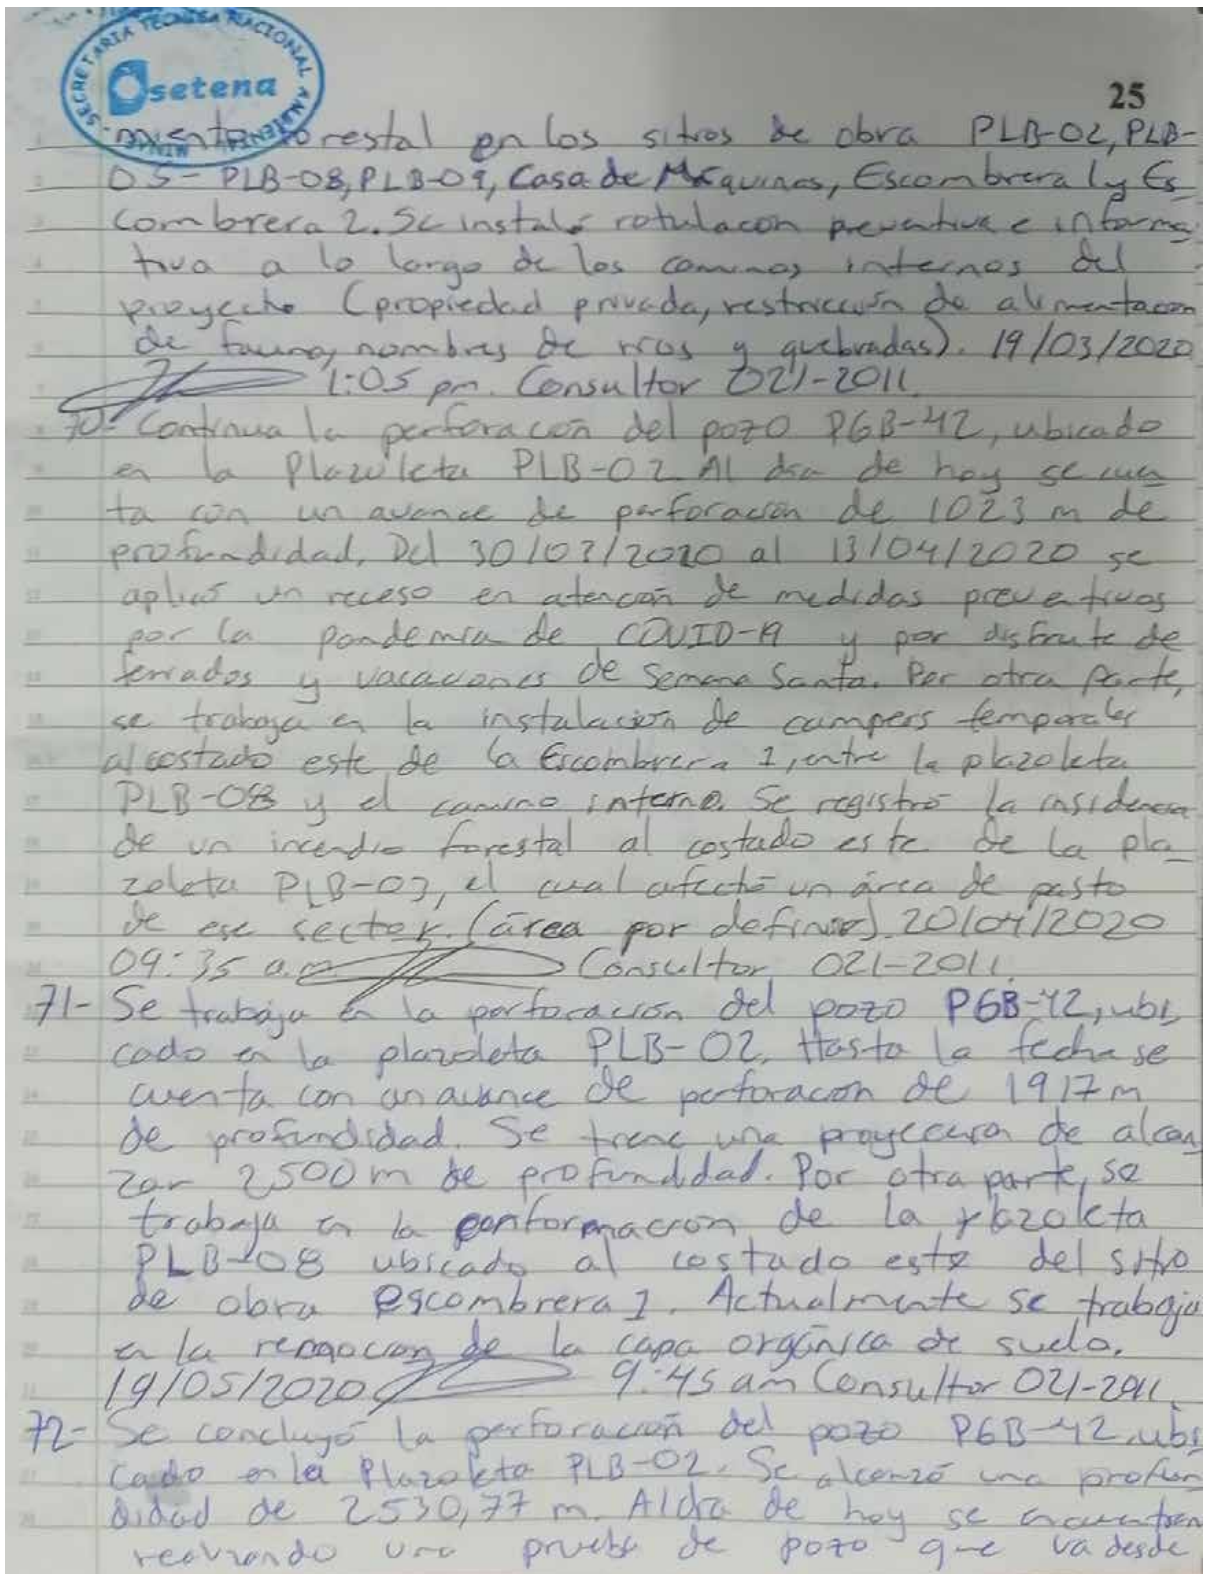 SECRETARIA TECNICA NACIONAL AMBIENTAL - MINAE -
setena
25
miento forestal en los sitios de obra PLB-02, PLB-
05- PLB-08, PLB-09, Casa de Máquinas, Escombrera 1 y Es
combrera 2. Se instaló rotulacon preventiva e informa
tiva a lo largo de los caminos internos del
proyecto (propiedad privada, restricción de alimentacon
de fauna, nombres de rios y quebradas). 19/03/2020
1:05 pm. Consultor 021-2011.
70- Continua la perforación del pozo PGB-42, ubicado
en la Plazoleta PLB-02. Al dia de hoy se cuen
ta con un avance de perforación de 1023 m de
profundidad. Del 30/03/2020 al 13/04/2020 se
aplicó un receso en atención de medidas preventivas
por la pandemia de COVID-19 y por disfrute de
feriados y vacaciones de Semana Santa. Por otra parte,
se trabaja en la instalación de campers temporales
al costado este de la Escombrera 1, entre la plazoleta
PLB-08 y el camino interno. Se registró la insidencia
de un incendio forestal al costado este de la pla
zoleta PLB-03, el cual afectó un área de pasto
de ese sector. (área por definir). 20/04/2020
09:35 a.m Consultor 021-2011.
71- Se trabaja en la perforación del pozo PGB-42, ubi
cado en la plazoleta PLB-02. Hasta la fecha se
cuenta con un avance de perforacon de 1917 m
de profundidad. Se tiene una proyección de alcan
zar 2500 m de profundidad. Por otra parte, se
trabaja en la conformación de la plazoleta
PLB-08 ubicado al costado este del sitio
de obra escombrera 1. Actualmente se trabaja
en la remoción de la capa orgánica de suelo.
19/05/2020 9:45 am Consultor 021-2011.
72- Se concluyó la perforación del pozo PGB-42 ubi
cado en la Plazoleta PLB-02. Se alcanzó una profun
didad de 2530,77 m. Al dia de hoy se encuentran
realizando una prueba de pozo que va desde